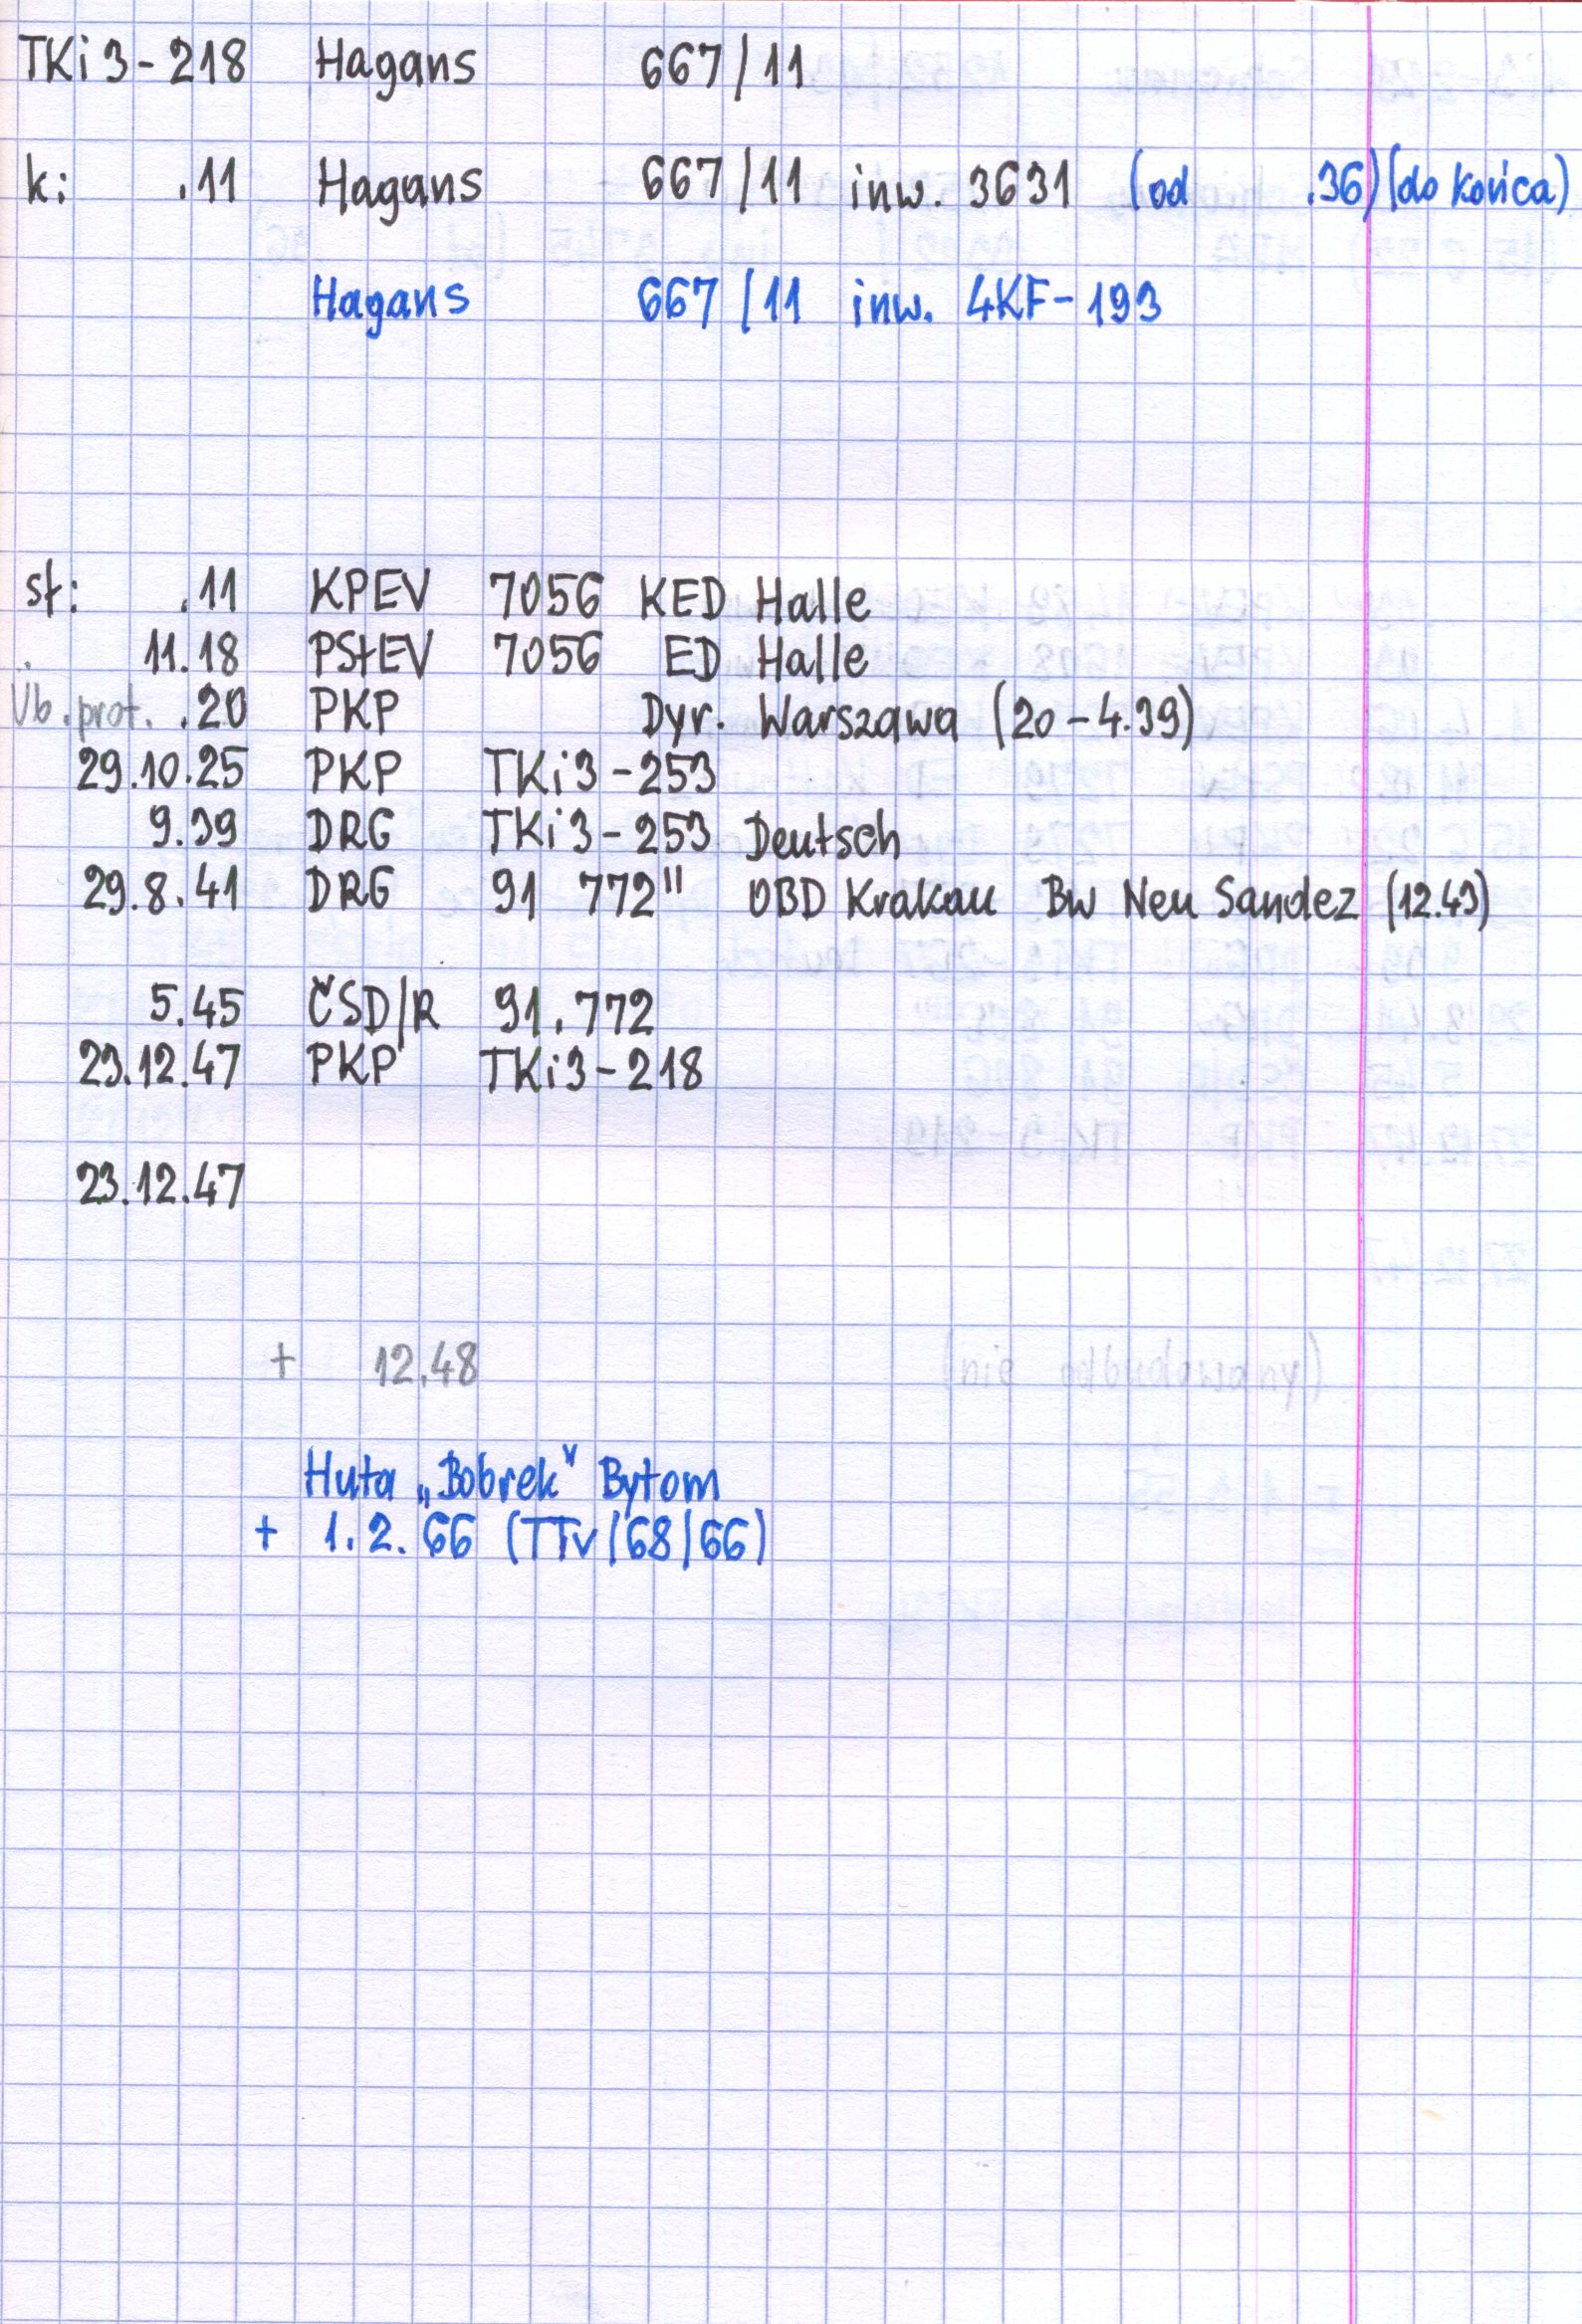 TKi3-218 Hagans 667/11
k: .11 Hagans 667/11 inw. 3631 (od .36) (do końca)
Hagans 667/11 inw. 4KF-193
sł: .11 KPEV 7056 KED Halle
11.18 PStEV 7056 ED Halle
Üb.prot. .20 PKP Dyr. Warszawa (20-4.39)
29.10.25 PKP TKi3-253
9.39 DRG TKi3-253 Deutsch
29.8.41 DRG 91 772" OBD Krakau Bw Neu Sandez (12.43)
5.45 ČSD/R 91.772
23.12.47 PKP TKi3-218
23.12.47
+ 12.48
Huta „Bobrek" Bytom
+ 1.2.66 (TTv/68/66)